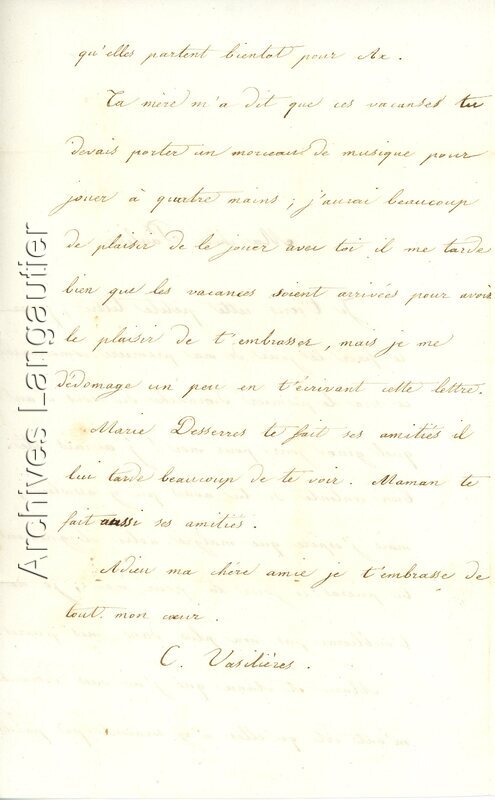 qu'elles partent bientot pour Ax.
Ta mère m'a dit que ces vacanses tu
devais porter un morceau de musique pour
jouer à quartre mains ; j'aurai beaucoup
de plaisir de le jouer avec toi il me tarde
bien que les vacances soient arrivées pour avoir
le plaisir de t'embrasser, mais je me
dédomage un peu en t'écrivant cette lettre.
Marie Desserres te fait ses amitiés il
lui tarde beaucoup de te voir. Maman te
fait aussi ses amitiés.
Adieu ma chère amie je t'embrasse de
tout mon cœur.
C. Vasilières.
Archives Langautier